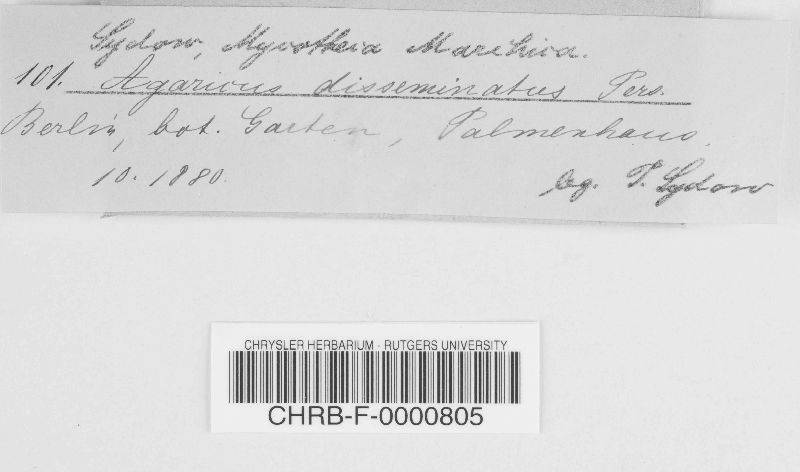 Sydow, Mycotheca Marchica.
101. Agaricus disseminatus Pers.
Berlin, bot. Garten, Palmenhaus.
10. 1880.
leg. P. Sydow
CHRYSLER HERBARIUM - RUTGERS UNIVERSITY
CHRB-F-0000805